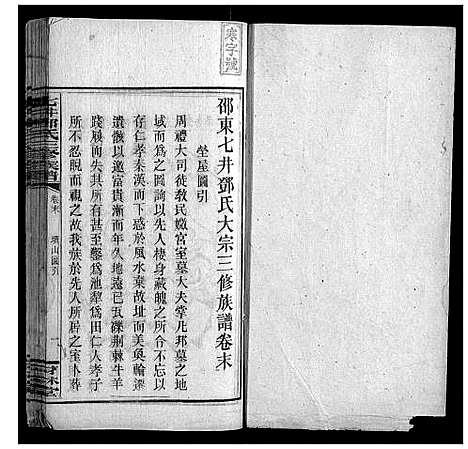 寒字號
邵東七井鄧氏大宗三修族譜卷末
塋屋圖引
周禮大司徒敎民媺宮室墓大夫掌凡邦墓之地
域而爲之圖詢以先人棲身藏魄之所合不忘以
存仁孝秦漢而下惑於風水棄故址而美奐輪深
遺骸以邀富貴漸而年久地遠已瓦礫荆棘牛羊
踐履而失其所有甚至鑿爲池犂爲田仁人孝子
所不忍睨而視之故我族於先人所辟之室卜葬
卷末 墳山圖引